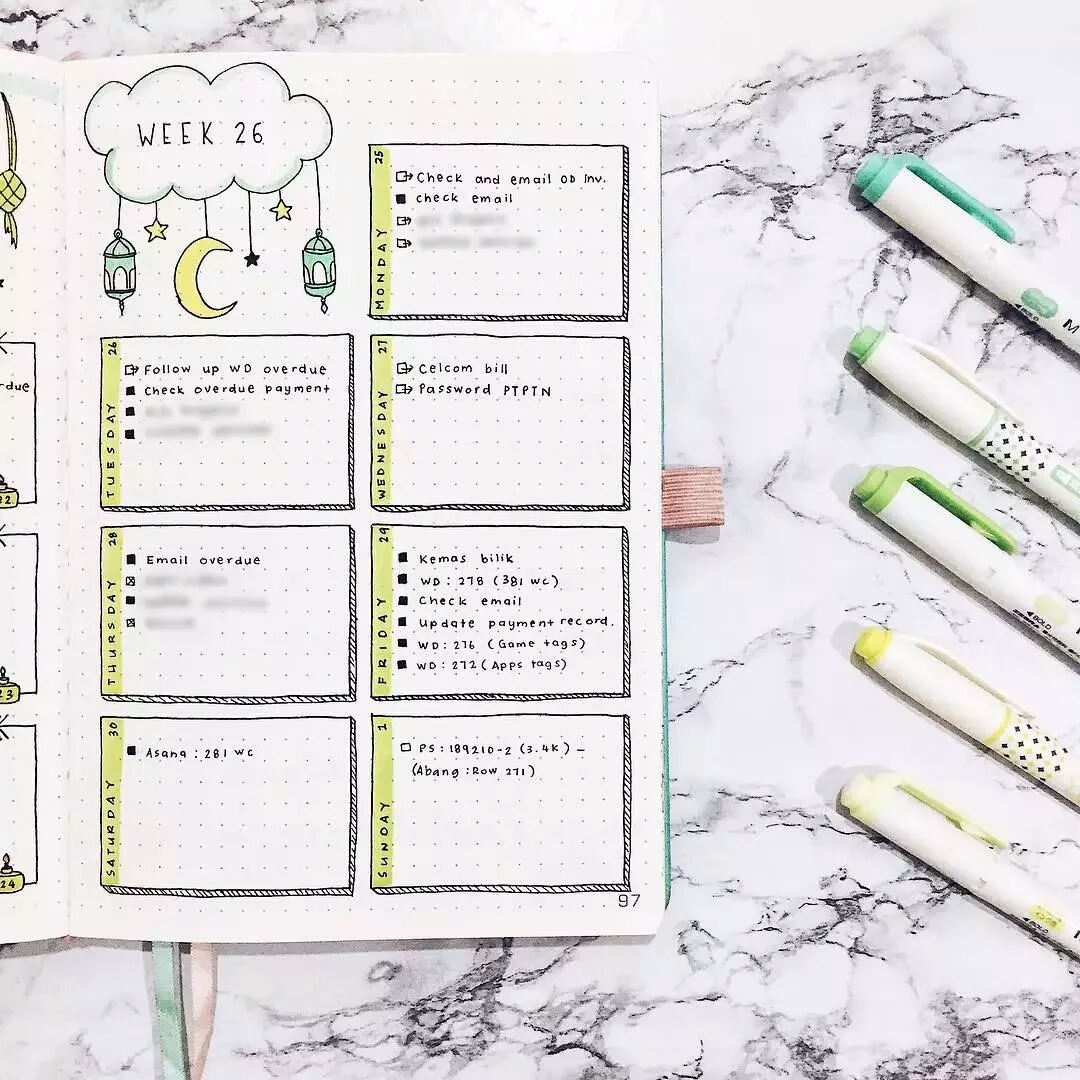 WEEK 26
rdue
22
23
24
25
MONDAY
Check and email OD Inv.
check email
26
TUESDAY
Follow up WD overdue
Check overdue payment
27
WEDNESDAY
Celcom bill
Password PTPTN
28
THURSDAY
Email overdue
29
FRIDAY
Kemas bilik
WD: 278 (381 wc)
Check email
Update payment record.
WD: 276 (Game tags)
WD: 272 (Apps tags)
30
SATURDAY
Asana: 281 wc
1
SUNDAY
PS: 189210-2 (3.4K) –
(Abang: Row 271)
97
BOLD
M
BOLD
BOLD